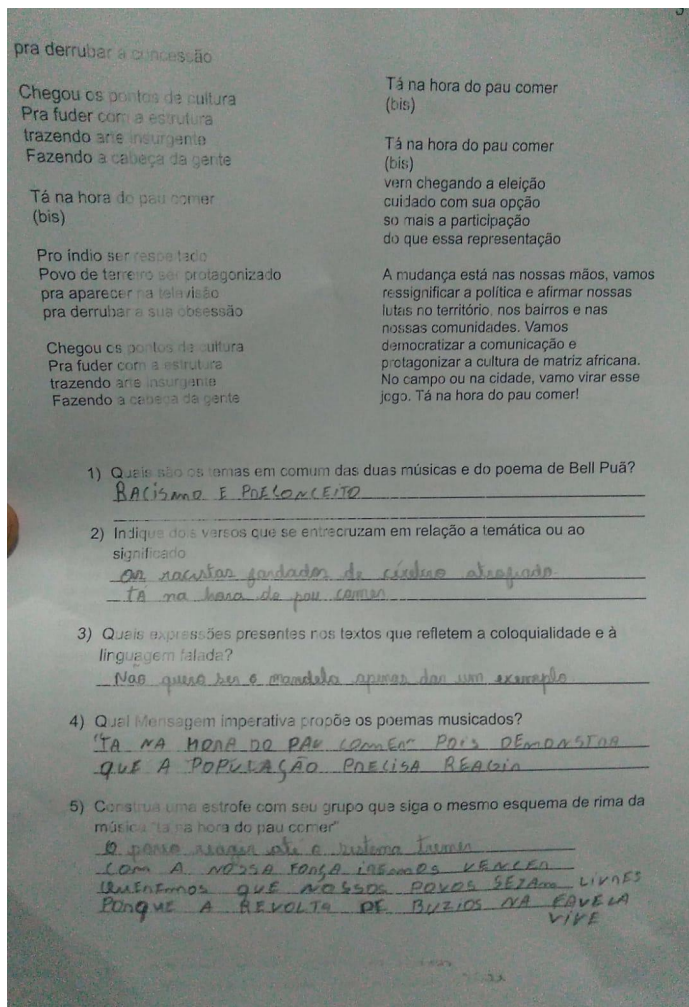 pra derrubar a concessão
Chegou os pontos de cultura
Pra fuder com a estrutura
trazendo arte insurgente
Fazendo a cabeça da gente
Tá na hora do pau comer
(bis)
Pro índio ser respeitado
Povo de terreiro ser protagonizado
pra aparecer na televisão
pra derrubar a sua obsessão
Chegou os pontos de cultura
Pra fuder com a estrutura
trazendo arte insurgente
Fazendo a cabeça da gente
Tá na hora do pau comer
(bis)
Tá na hora do pau comer
(bis)
vem chegando a eleição
cuidado com sua opção
so mais a participação
do que essa representação
A mudança está nas nossas mãos, vamos
ressignificar a política e afirmar nossas
lutas no território, nos bairros e nas
nossas comunidades. Vamos
democratizar a comunicação e
protagonizar a cultura de matriz africana.
No campo ou na cidade, vamo virar esse
jogo. Tá na hora do pau comer!
1) Quais são os temas em comum das duas músicas e do poema de Bell Puã?
RACISMO E PRECONCEITO
2) Indique dois versos que se entrecruzam em relação a temática ou ao
significado
os racistas fardados de cérebro atrofiado
TA na hora de pau comer
3) Quais expressões presentes nos textos que refletem a coloquialidade e à
linguagem falada?
Não quero ser o mandela apenas dar um exemplo
4) Qual Mensagem imperativa propõe os poemas musicados?
"TA NA HORA DO PAU COMER" POIS DEMONSTRA
QUE A POPULAÇÃO PRECISA REAGIR
5) Construa uma estrofe com seu grupo que siga o mesmo esquema de rima da
música "ta na hora do pau comer"
O povo reager até o sistema tremer
COM A NOSSA FORÇA IREMOS VENCER
QUEREMOS QUE NOSSOS POVOS SEZAM LIVRES
PORQUE A REVOLTA DE BUZIOS NA FAVELA
VIVE